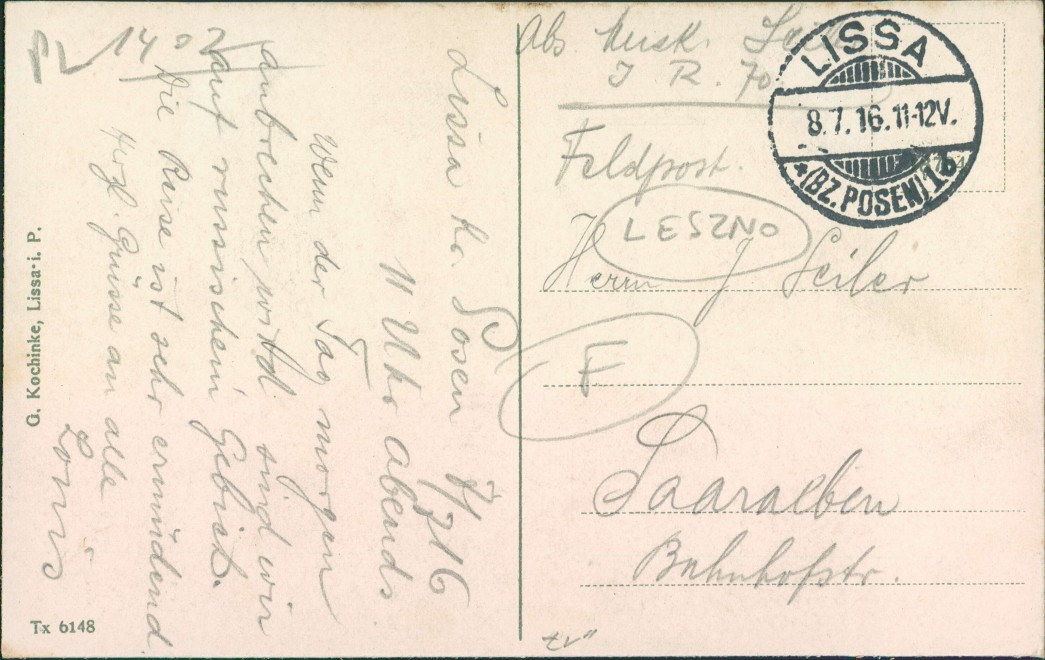 Lissa Kr. Posen 7/7 16
11 Uhr abends
Wenn der Tag morgen
anbrechen wird sind wir
auf russischem Gebiet.
Die Reise ist sehr ermüdend
Herzl. Grüsse an alle
Louis
14
G. Kochinke, Lissa i. P.
Tx 6148
Abs Musk.
I R. 70
Feldpost.
LISSA
8.7.16.11-12V.
* (BZ. POSEN) 1
LESZNO
Herrn J. Seiler
F
Saaralben
Bahnhofstr.